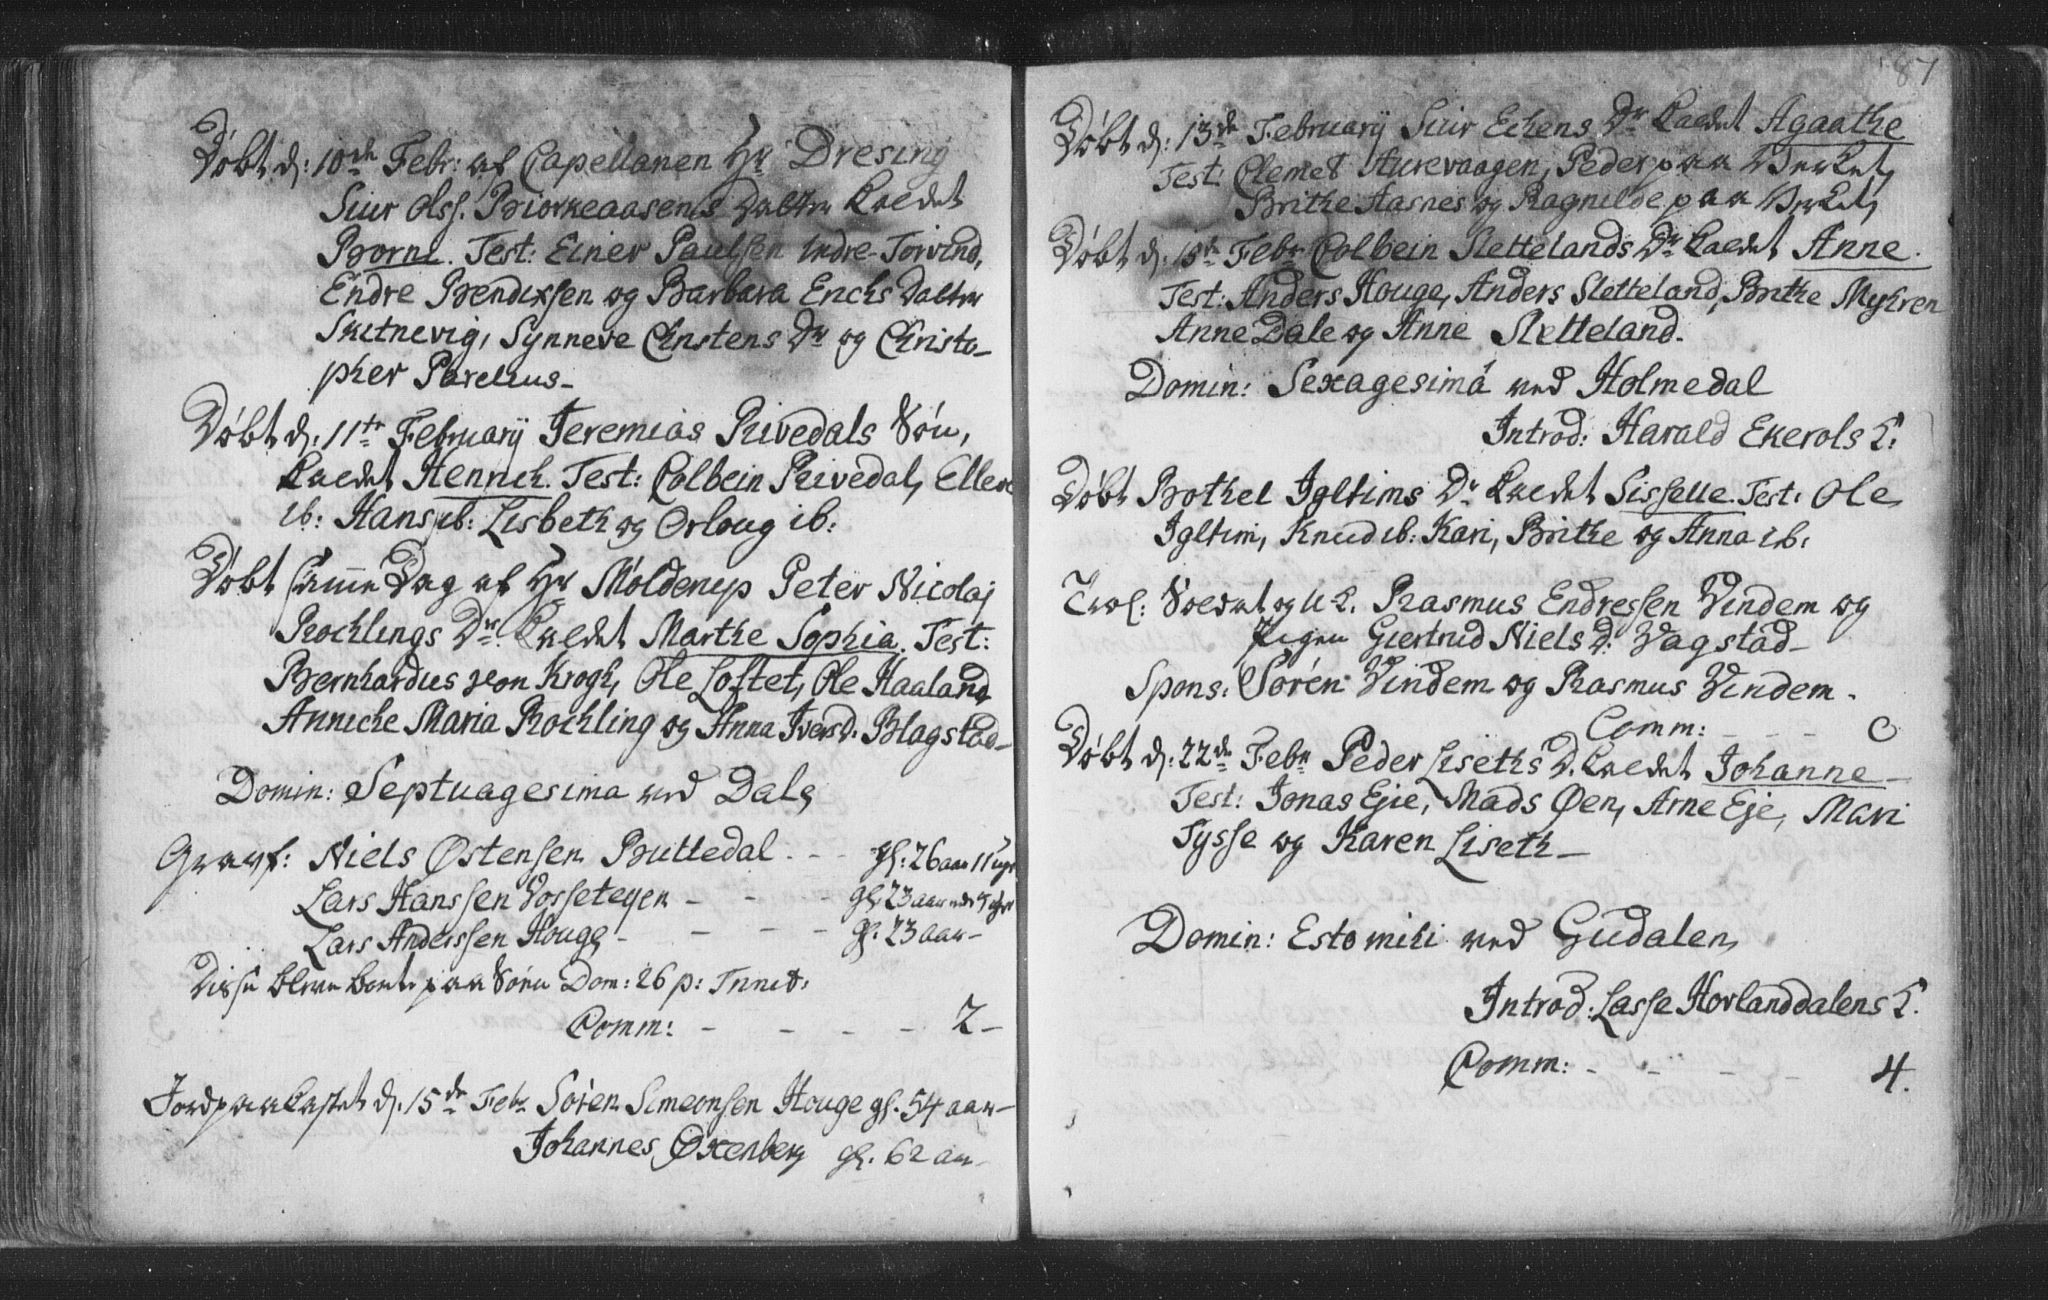 Døbt d: 10de Febr: af Capellanen Hr Dresing
Siur Olss. Biorkeaasens Datter kaldet
Borni. Test: Einer Paulsen Indre-Torvind,
Endre Bendixsen og Barbara Erichs Datter
Skitnevig, Synneve Christens Dr og Christo-
pher Parelius-
Døbt d: 11te Februarij Jeremias Rivedals Søn,
kaldet Henrich. Test: Colbein Rivedal, Ellev
ib: Hans ib: Lisbeth og Orloug ib:
Døbt samme Dag af Hr Molderup Peter Nicolaj
Rochlings Dr kaldet Marthe Sophia. Test:
Bernhardus von Krogh, Ole Loftet, Ole Haaland,
Anniche Maria Rochling og Anna Ivers d. Blagstad-
Domin: Septuagesima ved Dale
Gravf: Niels Østensen Buttedal. - - gl: 26 aar 11 ugr
Lars Hanssen Vossetegen - - - gl. 23 aar
Lars Anderssen Houge - - - - gl. 23 aar-
Disse bleve borte paa Søen Dom: 26 p: Trinit:
Comm: - - - - 2-
Jordpaakastet d. 15de Febr Søren Simeonsen Houge gl. 54 aar-
Johannes Oxenberg gl. 62 aar-
87
Døbt d: 13de Februarij Siur Echens Dr kaldet Agaathe
Test: Clemet Aurevaagen, Peder paa Verket,
Brithe Aasnes og Ragnilde paa Verket,
Døbt d. 15de Febr Colbein Slettelands Dr kaldet Anne.
Test: Anders Houge, Anders Sletteland, Brithe Myhren
Anne Dale og Anne Sletteland.
Domin: Sexagesimá ved Holmedal
Introd: Harald Ekerols K:
Døbt Bothel Igltims Dr kaldet Sisselle. Test: Ole
Igltim, Knud ib: Kari, Brithe og Anna ib:
Trol: Soldat og U K. Rasmus Endressen Vindem og
Pigen Giertrud Niels D: Vagstad-
Spons: Søren Vindem og Rasmus Vindem.
Comm: - - - 0
Døbt d: 22de Febr Peder Liseths D. kaldet Johanne-
Test: Jonas Eje, Mads Øen, Arne Eje, Mari
Tysse og Karen Liseth-
Domin: Esto mihi ved Gudalen,
Introd: Lasse Hovlanddalens K.
Comm: - - - - 4.